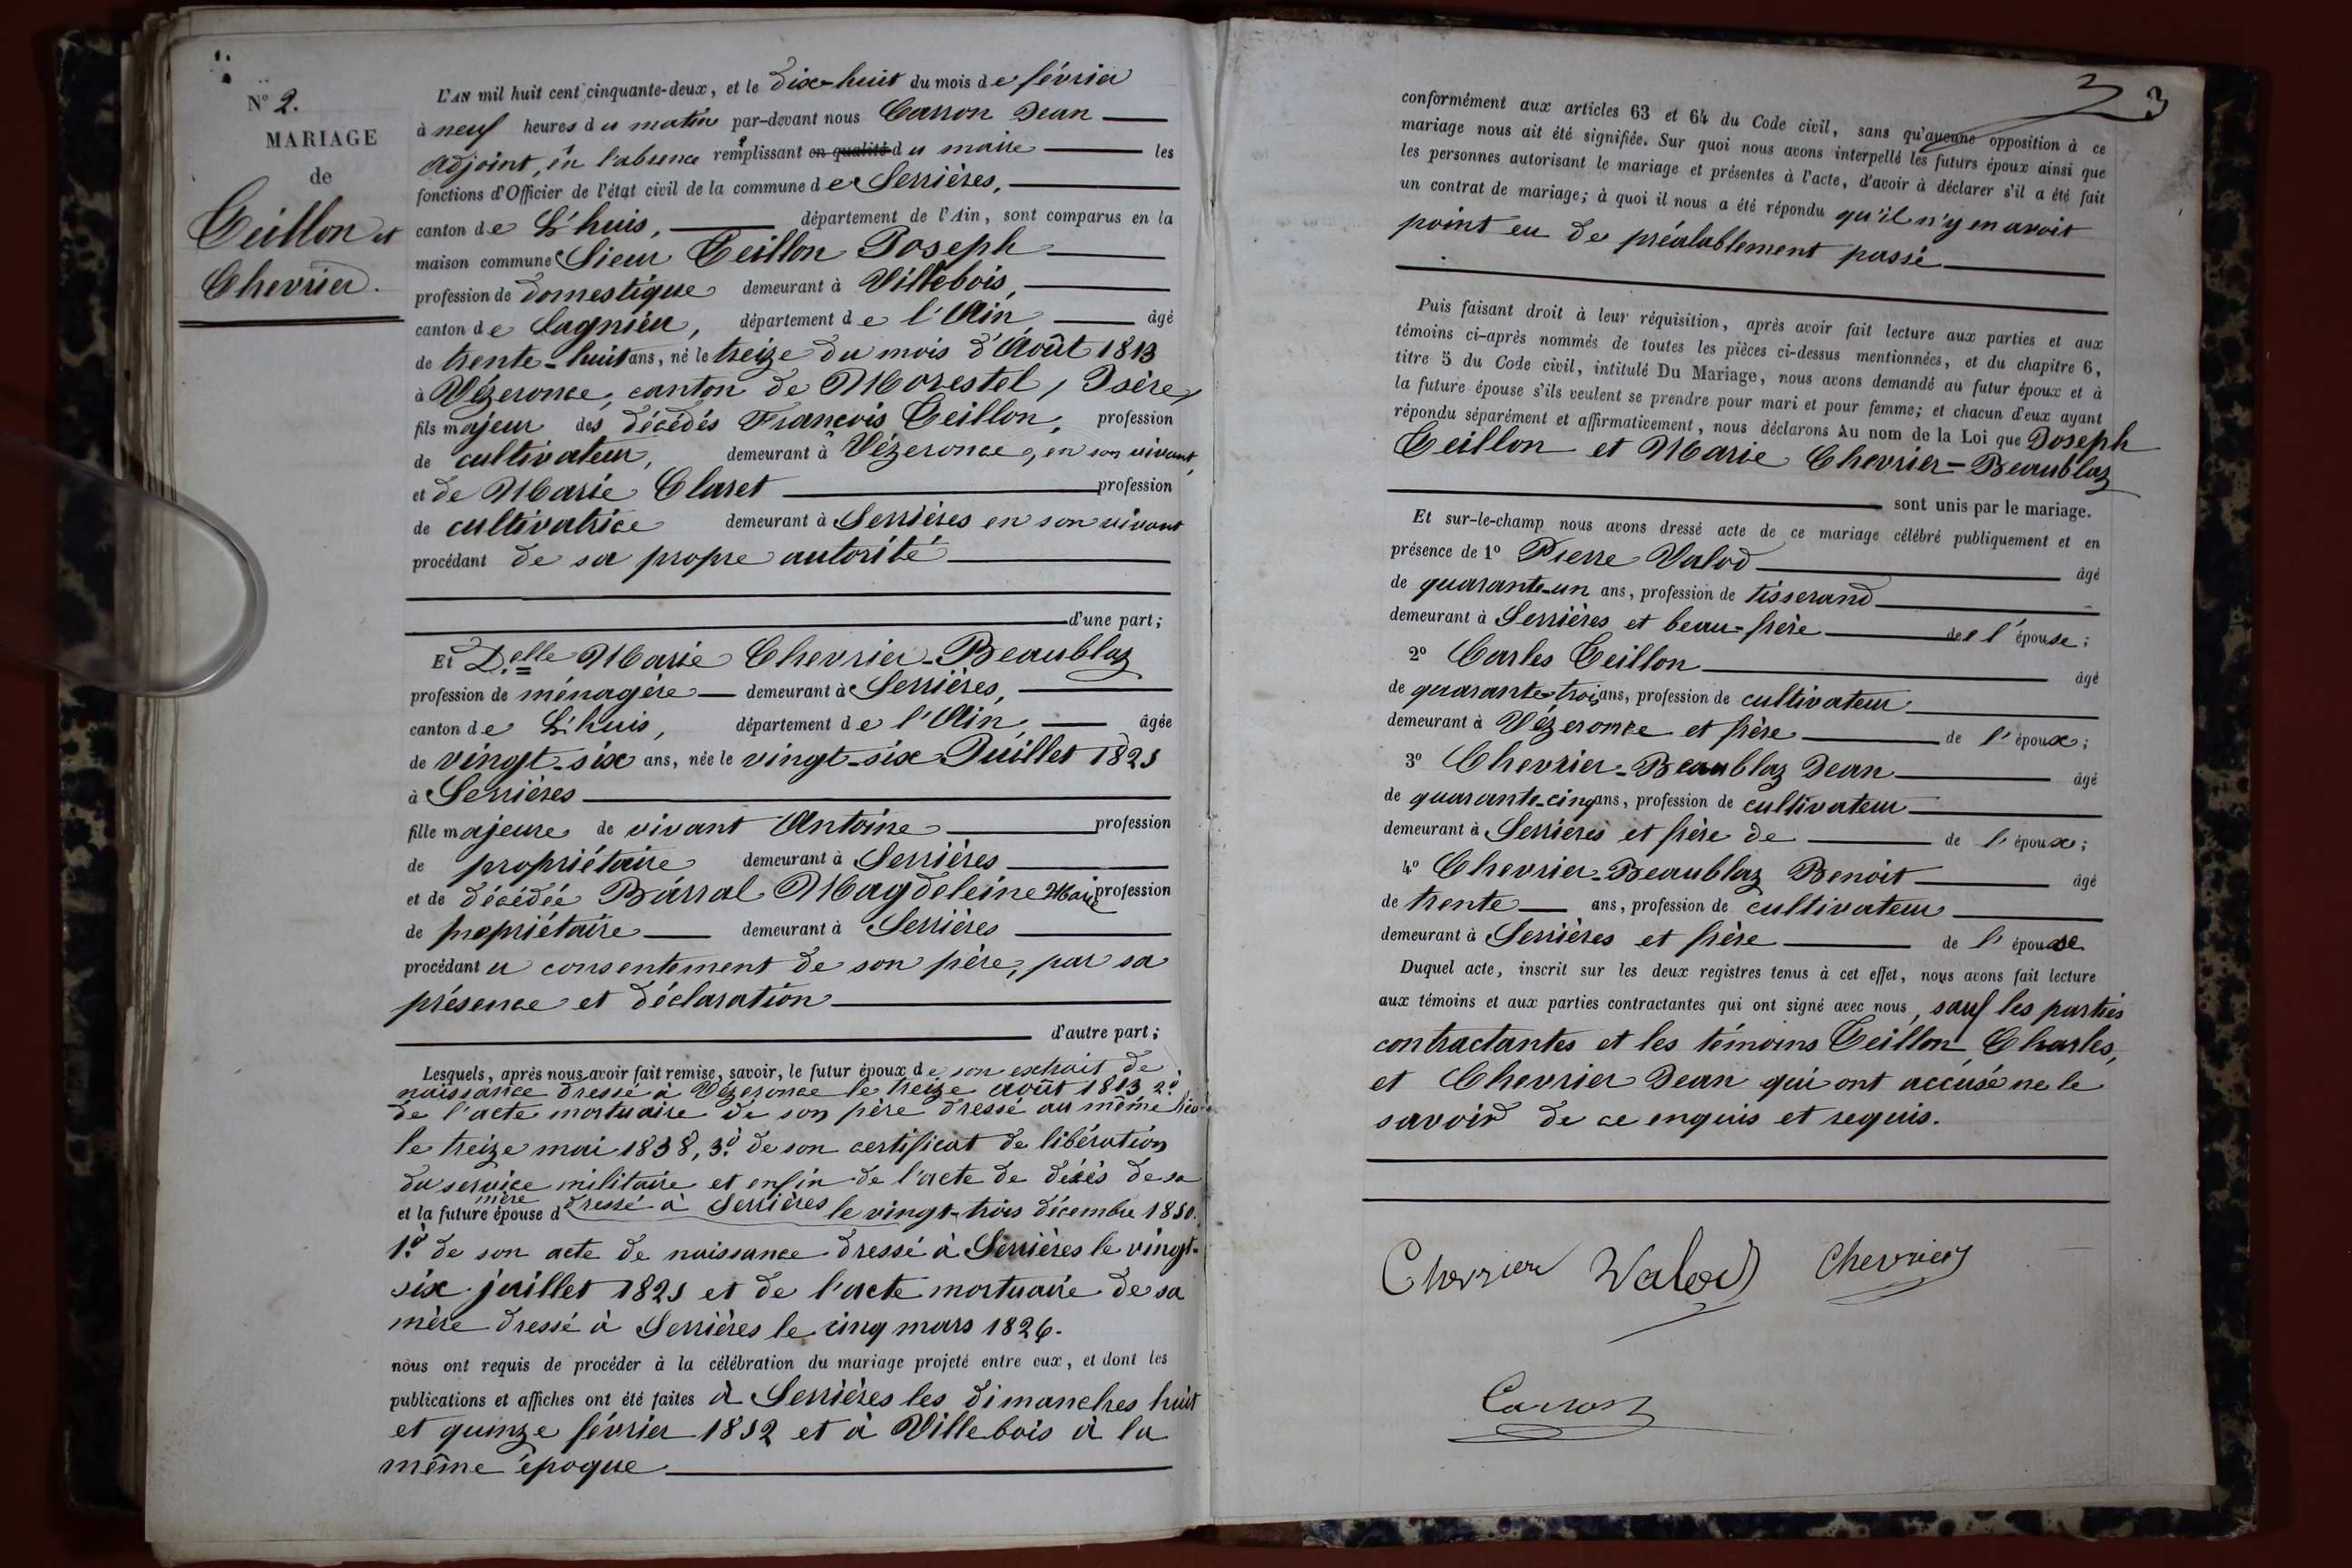 N° 2.
MARIAGE
de
Teillon et
Chevrier.
L'AN mil huit cent cinquante-deux, et le Dix-huit du mois de février
à neuf heures du matin par-devant nous Carron Jean
Adjoint, en l'absence remplissant en qualité du maire les
fonctions d'Officier de l'état civil de la commune de Serrières,
canton de L'huis, département de l'Ain, sont comparus en la
maison commune Sieur Teillon Joseph
profession de domestique demeurant à Villebois,
canton de Lagnieu, département de l'Ain âgé
de trente-huit ans, né le treize du mois d'Août 1813
à Vézeronce, canton de Morestel, Isère,
fils majeur des décédés François Teillon, profession
de cultivateur, demeurant à Vézeronce, en son vivant,
et de Marie Claret profession
de cultivatrice demeurant à Serrières en son vivant
procédant de sa propre autorité
d'une part;
Et D.elle Marie Chevrier-Beaublaz
profession de ménagère demeurant à Serrières,
canton de L'huis, département de l'Ain, âgée
de vingt-six ans, née le vingt-six Juillet 1825
à Serrières
fille majeure de vivant Antoine profession
de propriétaire demeurant à Serrières
et de décédée Barral Magdeleine Marie profession
de propriétaire demeurant à Serrières
procédant u consentement de son père, par sa
présence et déclaration
d'autre part;
Lesquels, après nous avoir fait remise, savoir, le futur époux de son extrait de
naissance dressé à Vézeronce le treize août 1813 2°.
de l'acte mortuaire de son père dressé au même lieu
le treize mai 1838, 3°. de son certificat de libération
du service militaire et enfin de l'acte de décès de sa
mère
et la future épouse d dressé à Serrières le vingt-trois décembre 1850.
1°. de son acte de naissance dressé à Serrières le vingt-
six juillet 1825 et de l'acte mortuaire de sa
mère dressé à Serrières le cinq mars 1826.
nous ont requis de procéder à la célébration du mariage projeté entre eux, et dont les
publications et affiches ont été faites à Serrières les dimanches huit
et quinze février 1852 et à Villebois à la
même époque
3
conformément aux articles 63 et 64 du Code civil, sans qu'aucune opposition à ce
mariage nous ait été signifiée. Sur quoi nous avons interpellé les futurs époux ainsi que
les personnes autorisant le mariage et présentes à l'acte, d'avoir à déclarer s'il a été fait
un contrat de mariage; à quoi il nous a été répondu qu'il n'y en avoit
point eu de préalablement passé
Puis faisant droit à leur réquisition, après avoir fait lecture aux parties et aux
témoins ci-après nommés de toutes les pièces ci-dessus mentionnées, et du chapitre 6,
titre 5 du Code civil, intitulé Du Mariage, nous avons demandé au futur époux et à
la future épouse s'ils veulent se prendre pour mari et pour femme; et chacun d'eux ayant
répondu séparément et affirmativement, nous déclarons Au nom de la Loi que Joseph
Teillon et Marie Chevrier-Beaublaz
sont unis par le mariage.
Et sur-le-champ nous avons dressé acte de ce mariage célébré publiquement et en
présence de 1° Pierre Valod âgé
de quarante-un ans, profession de tisserand
demeurant à Serrières et beau-frère de l'épouse;
2° Carles Teillon âgé
de quarante-trois ans, profession de cultivateur
demeurant à Vézeronce et frère de l'époux;
3° Chevrier-Beaublaz Jean âgé
de quarante-cinq ans, profession de cultivateur
demeurant à Serrières et frère de de l'époux;
4° Chevrier-Beaublaz Benoît âgé
de trente ans, profession de cultivateur
demeurant à Serrières et frère de l'épouse
Duquel acte, inscrit sur les deux registres tenus à cet effet, nous avons fait lecture
aux témoins et aux parties contractantes qui ont signé avec nous, sauf les parties
contractantes et les témoins Teillon Charles,
et Chevrier Jean qui ont accusé ne le
savoir de ce enquis et requis.
Chevrier Valod Chevrier
Carron